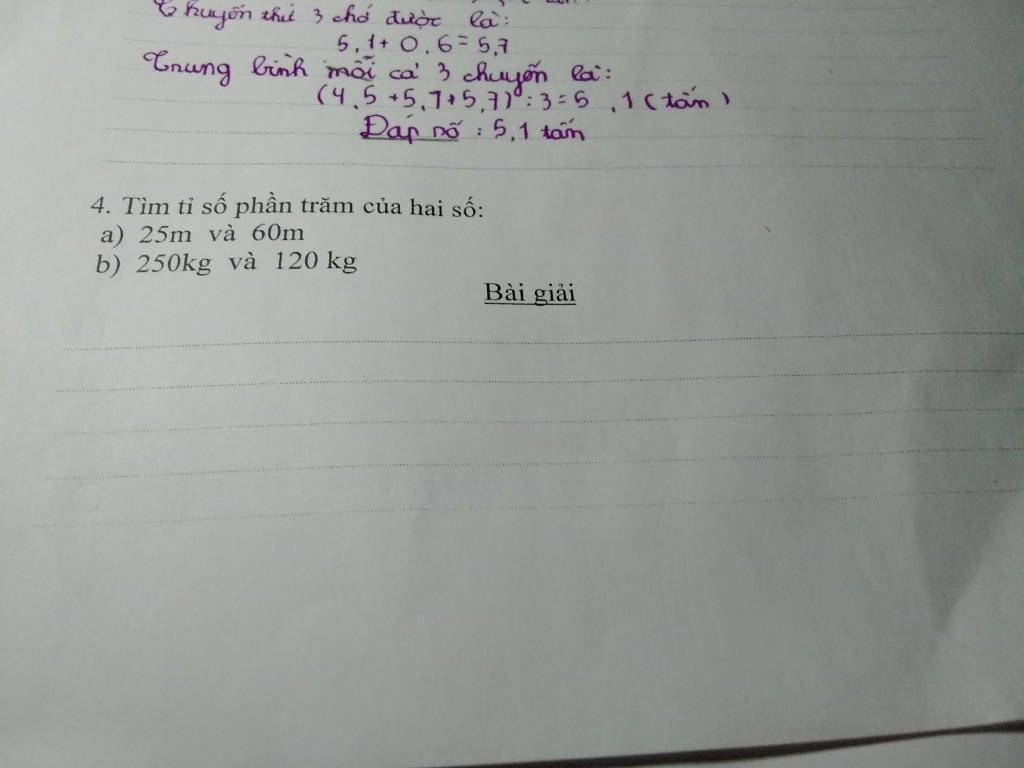 Chuyến thứ 3 chở được là:
5,1+ 0,6=5,7
Trung bình mỗi cả 3 chuyến là:
(4,5+5,1+5,7) :3=5 ,1 (tấn)
Đáp số : 5,1 tấn
4. Tìm tỉ số phần trăm của hai số:
a) 25m và 60m
b) 250kg và 120 kg
Bài giải